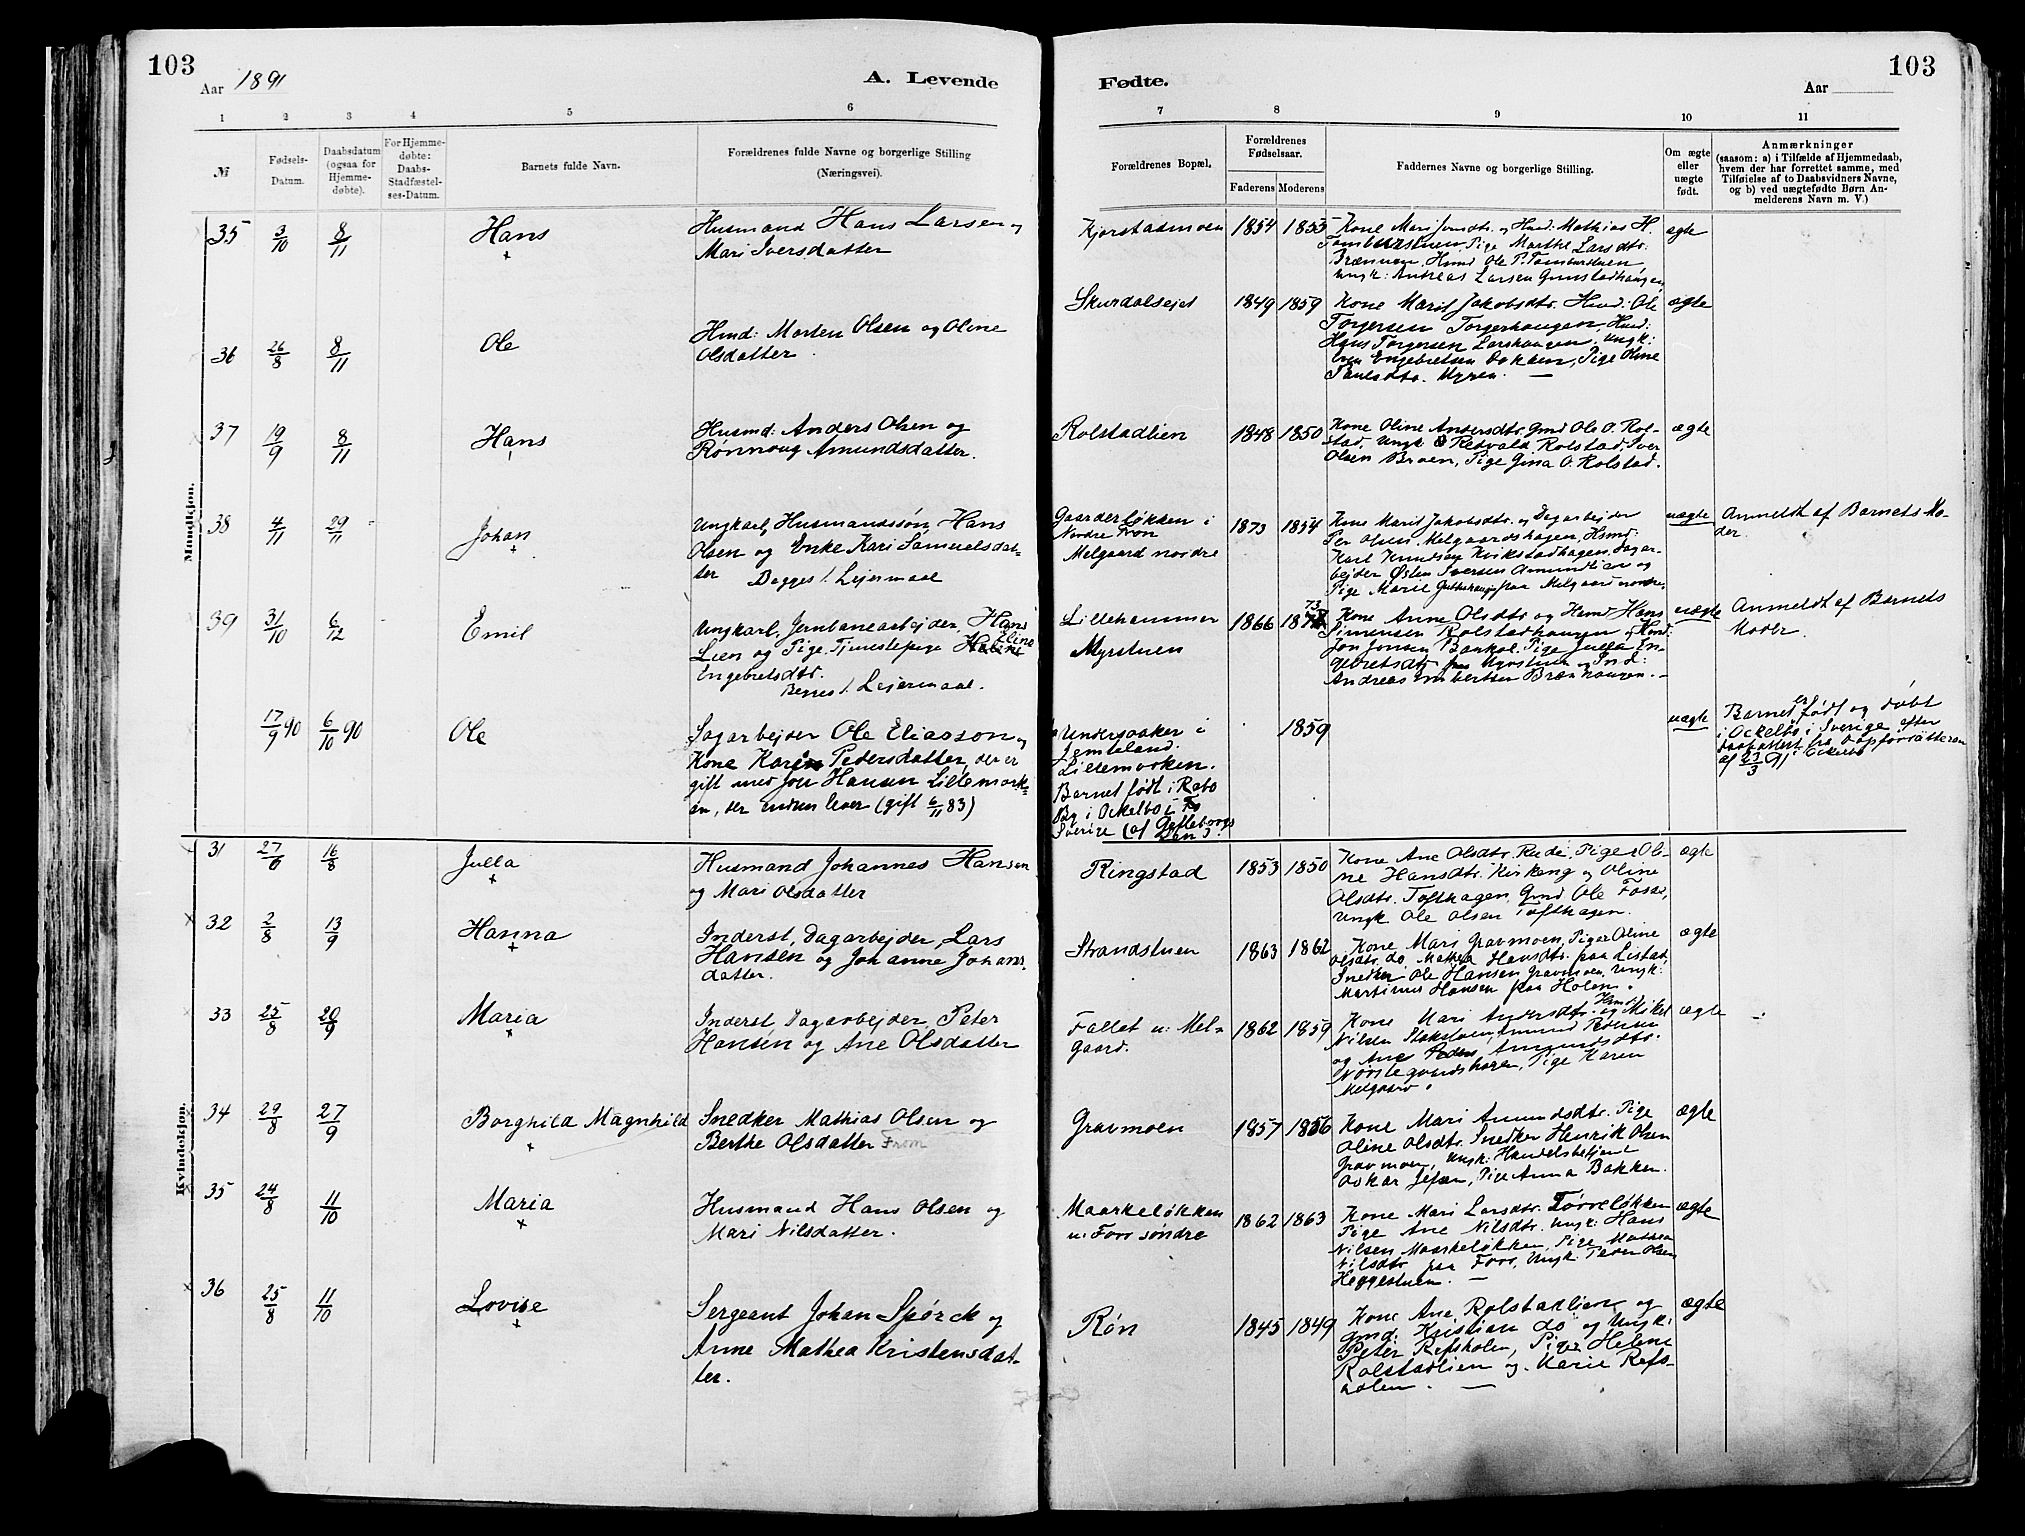 103
Aar 1891
A. Levende
Fødte.
Aar
103
1 2 3 4 5 6 7 8 9 10 11
№
Fødsels-Datum.
Daabsdatum (ogsaa for Hjemme-døbte).
For Hjemme-døbte: Daabs-Stadfæstel-ses-Datum.
Barnets fulde Navn.
Forældrenes fulde Navne og borgerlige Stilling
(Næringsvei).
Forældrenes Bopæl.
Forældrenes Fødselsaar.
Faderens Moderens
Faddernes Navne og borgerlige Stilling.
Om ægte eller uægte født.
Anmærkninger
(saasom: a) i Tilfælde af Hjemmedaab,
hvem der har forrettet samme, med
Tilføielse af to Daabsvidners Navne,
og b) ved uægtefødte Børn An-
melderens Navn m. V.)
Mandkjøn.
35 3/10 8/11 Hans
Husmand Hans Larsen og
Mari Iversdatter
Kjorstadmoen 1854 1855
Kone Mari
Mathias H.
Pige Marthe Larsdtr.
Brænnen, Hmd Ole P. Tomburstuen
Ungk: Andreas Larsen
ægte
36 26/8 8/11 Ole
Hmd: Morten Olsen og Oline
Olsdatter.
Skurdalseiet 1849 1859
Kone Marit Jakobsdtr. Hmd: Ole
Torgersen Torgerhaugen, Hmd:
Hans Torgersen Larshaugen, Ungk:
Iver Engebretsen Bakken, Pige Oline
Paulsdtr. Myren. —
ægte
37 19/9 8/11 Hans
Husmd: Anders Olsen og
Rønnoug Amundsdatter.
Rolstadlien 1848 1850
Kone Oline Andersdtr. Gmd Ole O. Rol-
stad, Ungk Redvald Rolstad, Iver
Olsen Broen, Pige Gina O. Rolstad.
ægte
38 4/11 29/11 Johan
Ungkarl, Husmandssøn, Hans
Olsen og Enke Kari Samuelsdat-
ter Begges 1. Leiermaal
Gaarderløkken i
Nordre Fron
Melgaard nordre
1873 1854
Kone Marit Jakobsdtr. og Dagarbejder
Per Olsen, Melgaardshagen, Hsmd:
Karl Knudsen Kirkstadhagen, Dagar-
bejder Østen Iversen Amundlien og
Pige Marie paa Melgaard nordre.
uægte
Anmeldt af Barnets Mo-
der.
39 31/10 6/12 Emil
Ungkarl, Jernbanearbejder, Hans
Lien og Pige Tjenestepige Eline
Engebretsdtr.
Begges 1. Leiermaal.
Lillehammer
Myrstuen
1866 1873
Kone Anne Olsdtr. og Hsmd Hans
Simensen Rolstadhaugen, Hmd:
Jon Jonsen Bankol. Pige Julla En-
gebretsdtr. Myrstuen og Ind:
Andreas Brænhaugen. —
uægte
Anmeldt af Barnets
Moder.
17/9 90 6/10 90 Ole
Sagarbejder Ole Eliasson og
Kone Karen Pedersdatter, der er
gift med Jon Hansen Lillemork-
en, der endnu lever (gift 6/11 83)
Undersaaker i
Jemteland.
Lillemorken.
Barnet født i Rabo
By i Ockelbo i
Sverige (af Gefleborgs
Len).
1859
uægte
Barnet er født og døbt
i Ockelbo i Sverige efter
Daabattest fra
af 23/3 91 i Ockelbo
Kvindekjøn.
31 27/6 16/8 Julla
Husmand Johannes Hansen
og Mari Olsdatter
Ringstad 1853 1850
Kone Ane Olsdtr. Rude, Pige Oli-
ne Hansdtr. Kirkeng og Oline
Olsdtr. Tofthagen. Gmd Ole Fosse,
Ungk Ole Olsen Tofthagen.
ægte
32 2/8 13/9 Hanna
Inderst, Dagarbejder, Lars
Hansen og Johanne Johans-
datter.
Strandstuen 1863 1862
Kone Mari Gravmoen, Piger Oline
Olsdtr. do Mathea Hansdtr. paa Listad
Snedker Ole Hansen Gravmoen, Ungk:
Martinus Hansen paa Holen.
ægte
33 25/8 20/9 Maria
Inderst, Dagarbejder Peter
Hansen og Ane Olsdatter
Fallet u: Mel-
gaard.
1862 1859
Kone Mari Andersdtr. og Hsmd Mikel
Nilsen Amund
og Ane Amundsdtr.
Nørstegaardshagen, Pige Karen
Melgaard.
ægte
34 29/8 27/9 Borghild Magnhild
Snedker Mathias Olsen og
Berthe Olsdatter From
Gravmoen 1857 1856
Kone Mari Amundsdtr. Pige
Oline Olsdtr. Snedker Henrik Olsen
Gravmoen, Ungk: Handelsbetjent
Oskar Jefsen, Pige Anna Bakken.
ægte
35 24/8 11/10 Maria
Husmand Hans Olsen og
Mari Nilsdatter.
Maarkeløkken
u: Forr søndre
1862 1863
Kone Mari Larsdtr. Tørreløkken
Pige Ane Nilsdtr. Ungk: Hans
Nilsen Maarkeløkken, Pige Mathea
Nilsdtr. paa Forr, Ungk Peder Olsen
Heggestuen. —
ægte
36 25/8 11/10 Lovise
Sergeant Johan Spørck og
Anne Mathea Kristensdat-
ter.
Røn 1845 1849
Kone Ane Rolstadlien og
Gmd: Kristian do og Ungk:
Peter Refsholen, Piger Helene
Rolstadlien og Marie Refs-
holen. —
ægte